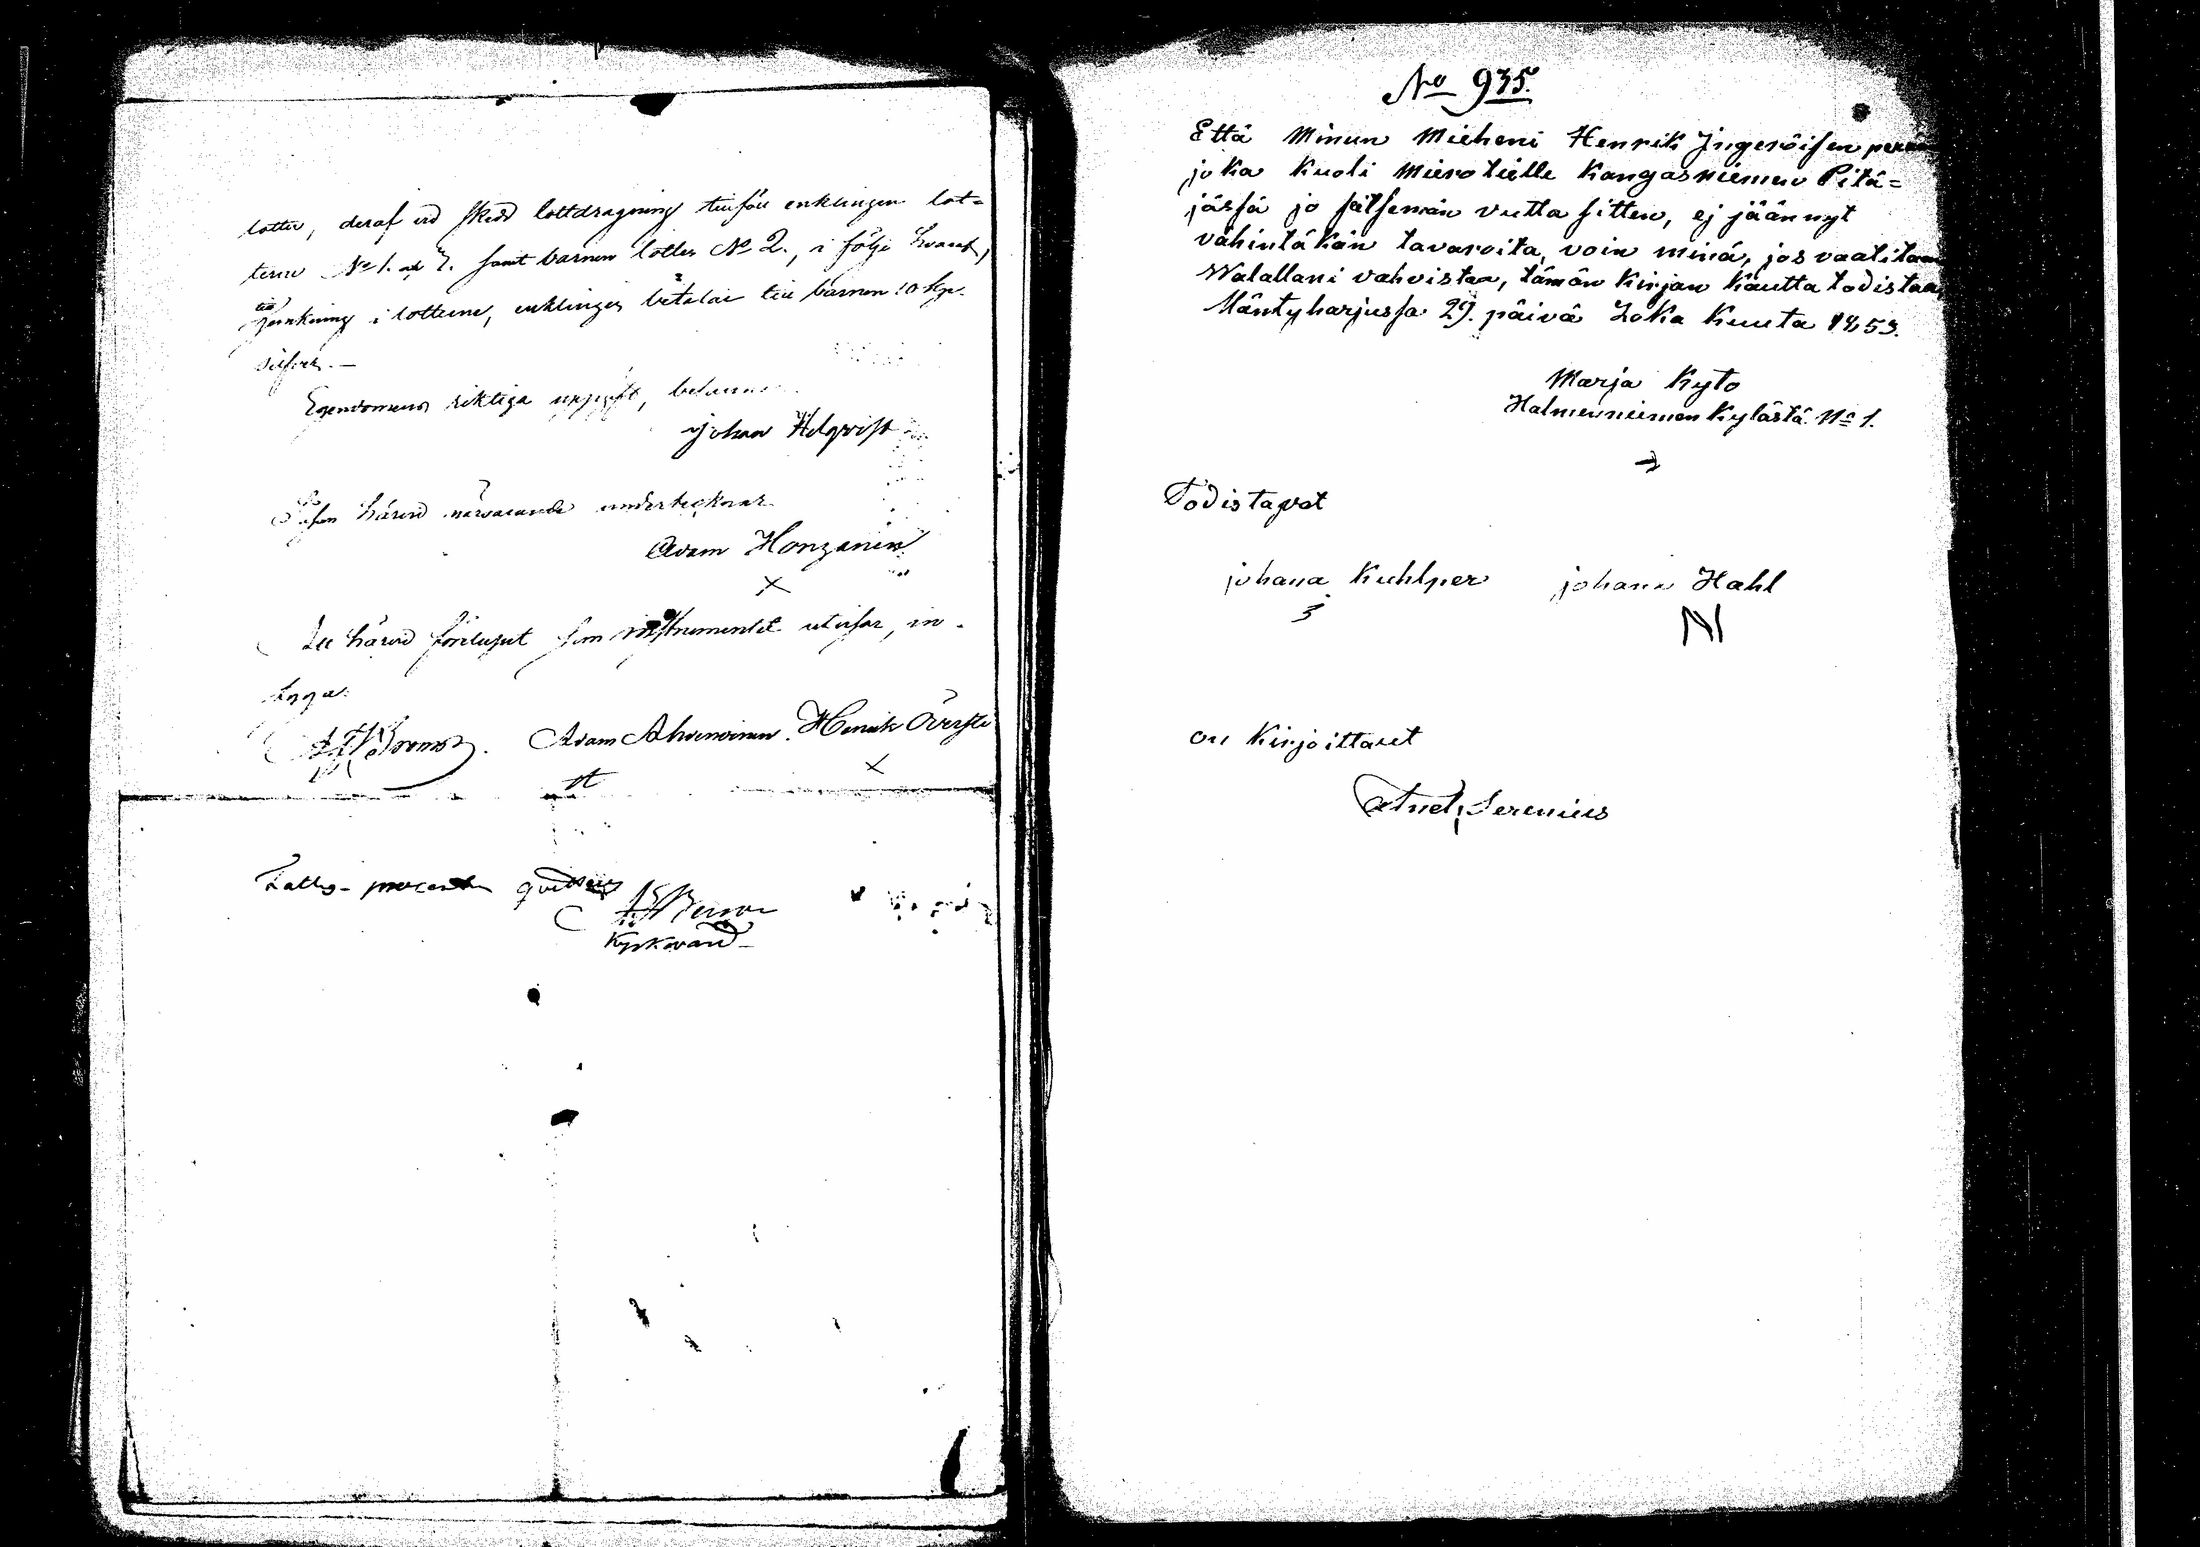 lotter, deraf vid skedd lottdragning tillföll enklingen lot=
terne No 1. och 7. samt barnen lotter No 2., i följe hvaraf,
till jemkning i lotterne, enklingen betalar till barnen 10 kop.
silfver. —
Egendomens riktiga uppgift,
Johan Helqvist
härvid närvarande undertecknar
Adam Honganin
X
härvid förelupit som instrumentet utvisar, in-
tyga:
Adam Ahvenainen. Henrik Öfversti
X
Fattig-procenten qvitteras
Kyrkovärd
No 935.
Että Minun Mieheni Henrik Ingeröisen perän
joka kuoli Mierotielle Kangasniemen Pitä=
jässä jo seitsemän vutta sitten, ej jäännyt
vähintäkän tavaroita, voin minä, jos vaaditaan
Walallani vahvistaa, tämän Kirjan kautta todistaa,
Mäntyharjussa 29. päivä Loka kuuta 1853.
Marja Kyto
Halmenniemen kylästä No 1.
Todistavat
johana Kuhlper johann Hahl
N
on Kirjoittanut
Serenius